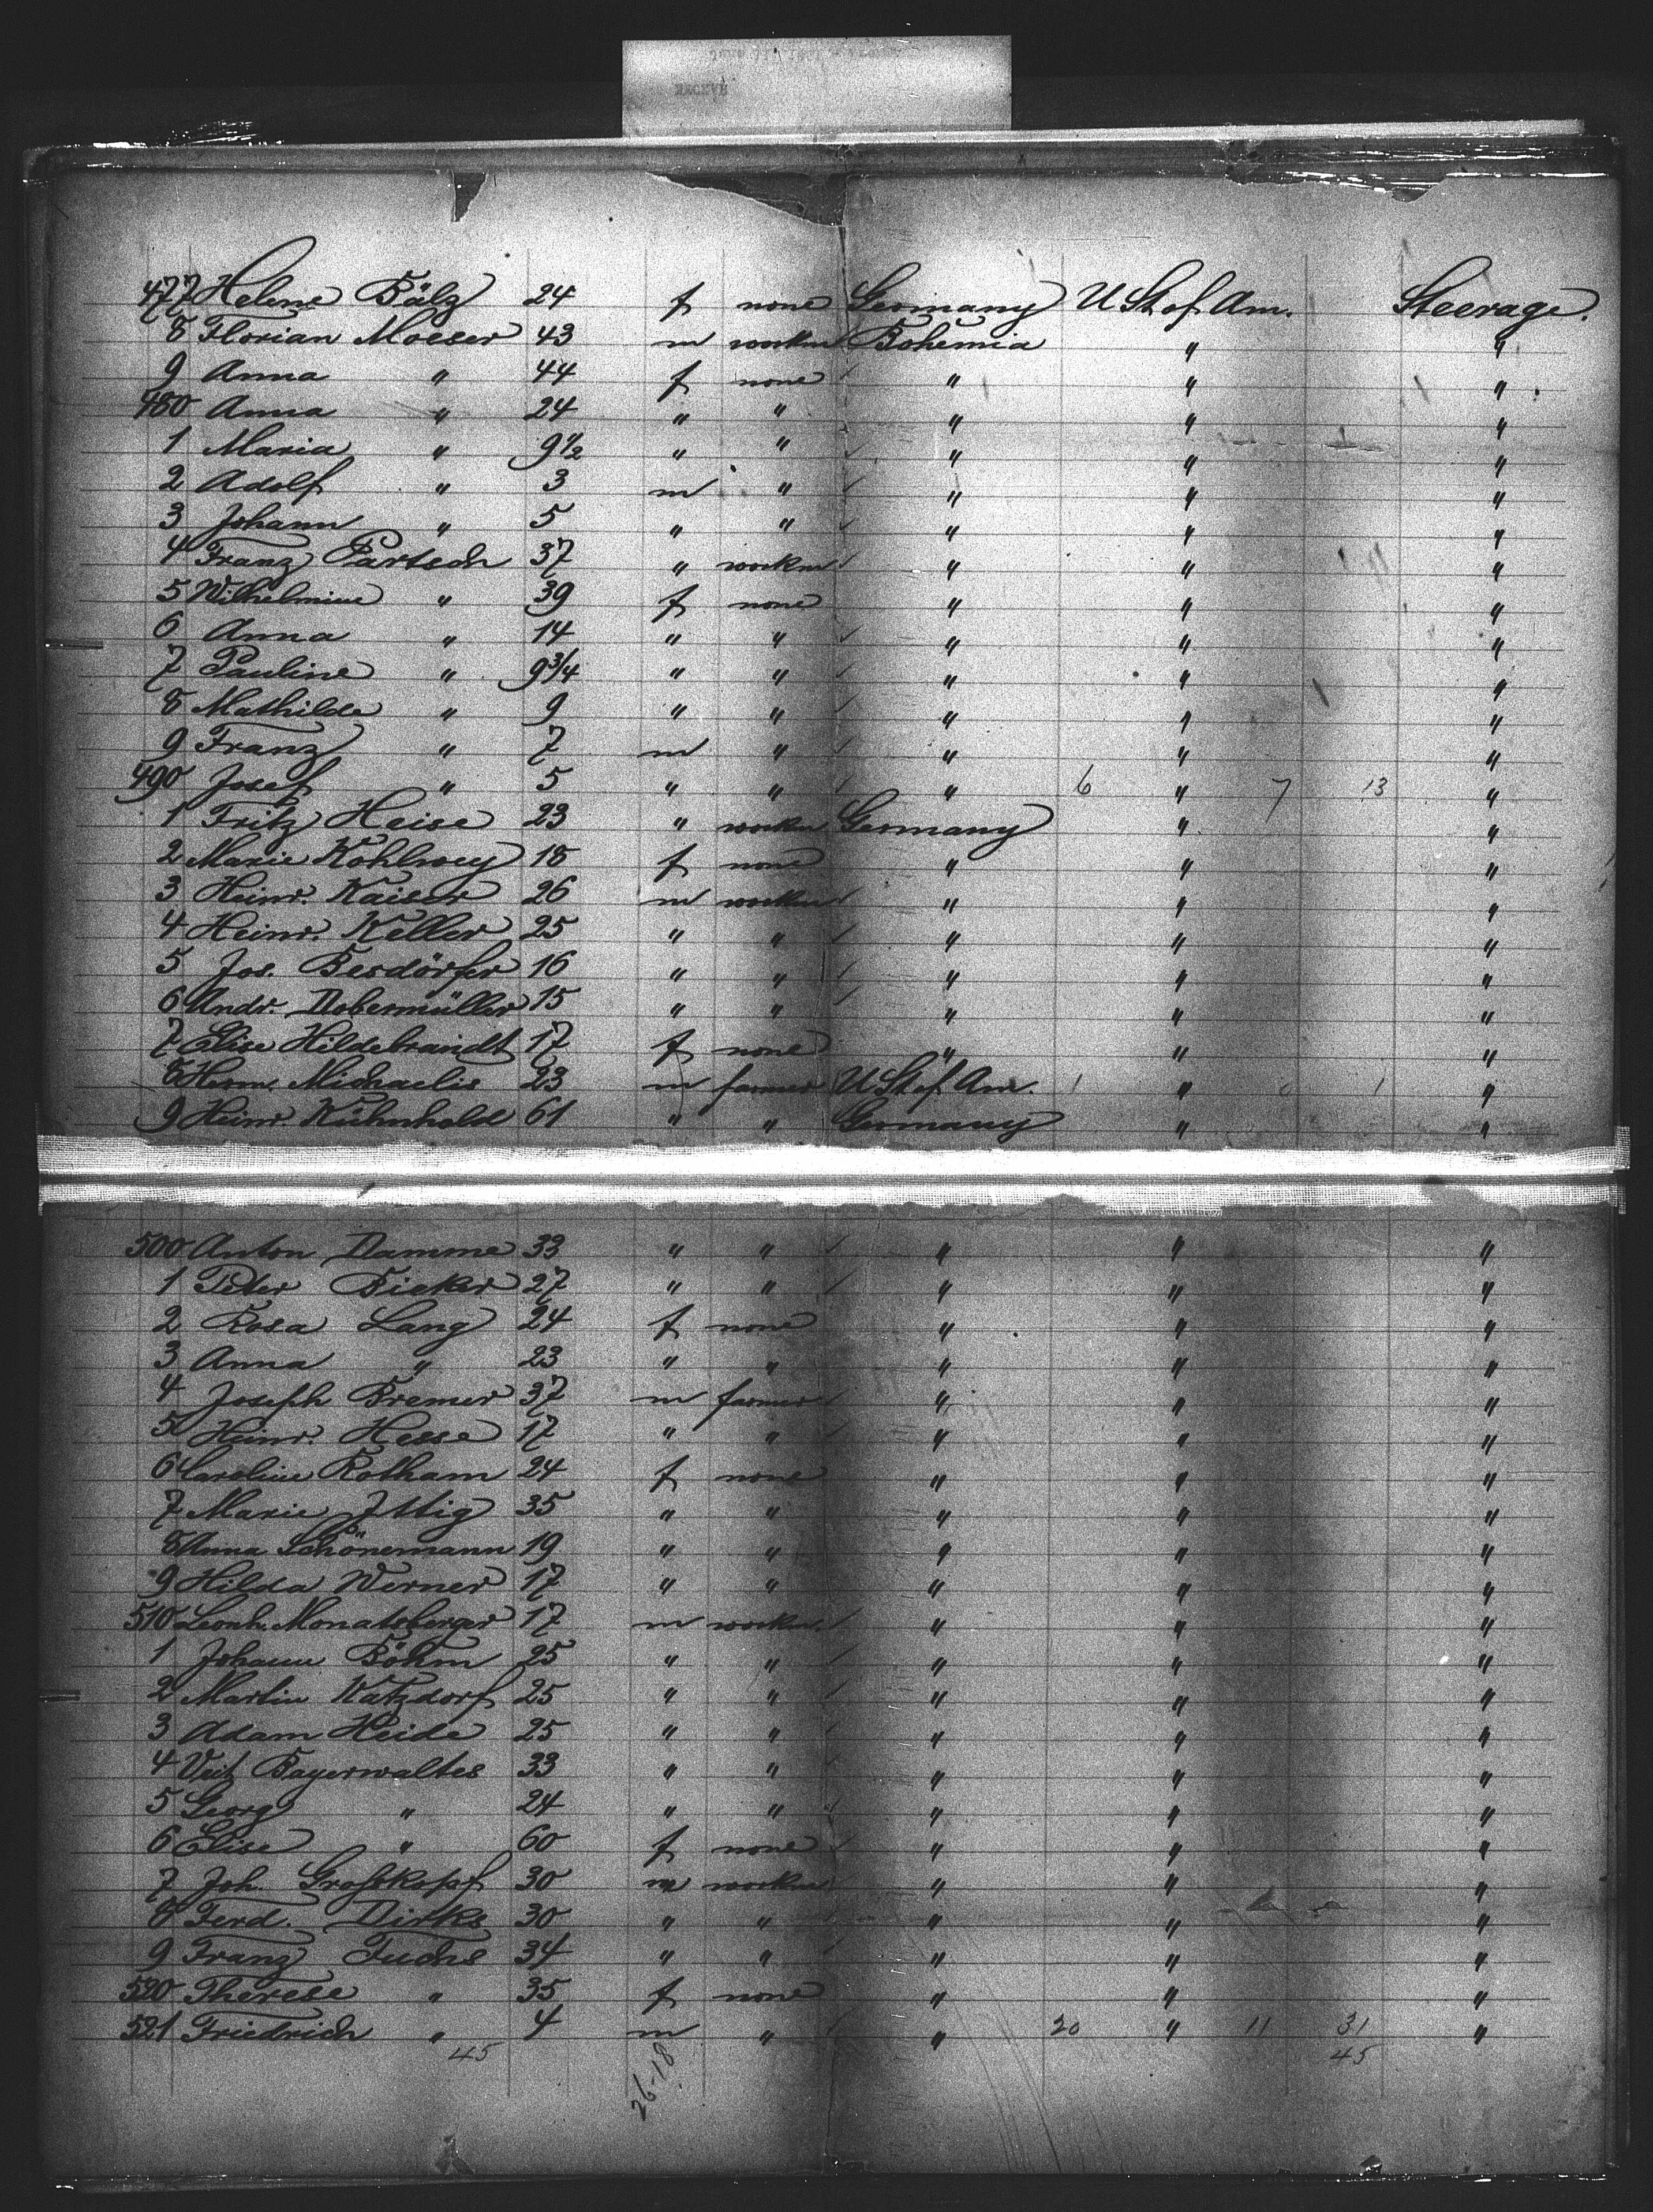 477 Helene Bälz 24 f none Germany U St of Am. Steerage.
8 Florian Moeser 43 m workm Bohemia " "
9 Anna " 44 f none " " "
480 Anna " 24 " " " " "
1 Maria " 9 1/2 " " " " "
2 Adolf " 3 m " " " "
3 Johann " 5 " " " " "
4 Franz Partsch 37 " workm " " "
5 Wilhelmine " 39 f none " " "
6 Anna " 14 " " " " "
7 Pauline " 9 3/4 " " " " "
8 Mathilde " 9 " " " " "
9 Franz " 7 m " " " "
490 Josef " 5 " " " 6 " 7 13 "
1 Fritz Heise 23 " workm Germany " "
2 Marie Kohlwey 18 f none " " "
3 Heinr. Kaiser 26 m workm " " "
4 Heinr. Keller 25 " " " " "
5 Jos. Besdörfer 16 " " " " "
6 Andr. Dobermüller 15 " " " " "
7 Elise Hildebrandt 17 f none " " "
8 Herm. Michaelis 23 m farmer U St of Am. 1 " 0 1 "
9 Heinr. Kühnhold 61 " " Germany " "
500 Anton Damme 33 " " " " "
1 Peter Bicker 27 " " " " "
2 Rosa Lang 24 f none " " "
3 Anna " 23 " " " " "
4 Joseph Bremer 37 m farmer " " "
5 Heinr. Hesse 17 " " " " "
6 Caroline Rotham 24 f none " " "
7 Marie Ittig 35 " " " " "
8 Anna Schönemann 19 " " " " "
9 Hilda Werner 17 " " " " "
510 Leonh. Monatsberger 17 m workm. " " "
1 Johann Böhm 25 " " " " "
2 Martin Katzdorf 25 " " " " "
3 Adam Heide 25 " " " " "
4 Veit Bayerwaltes 33 " " " " "
5 Georg " 24 " " " " "
6 Elise " 60 f none " " "
7 Joh. Großkopf 30 m workm " " "
8 Ferd. Dirks 30 " " " " "
9 Franz Fuchs 34 " " " " "
520 Therese " 35 f none " " "
521 Friedrich " 4 m " " 20 " 11 31 "
45 45
26-18